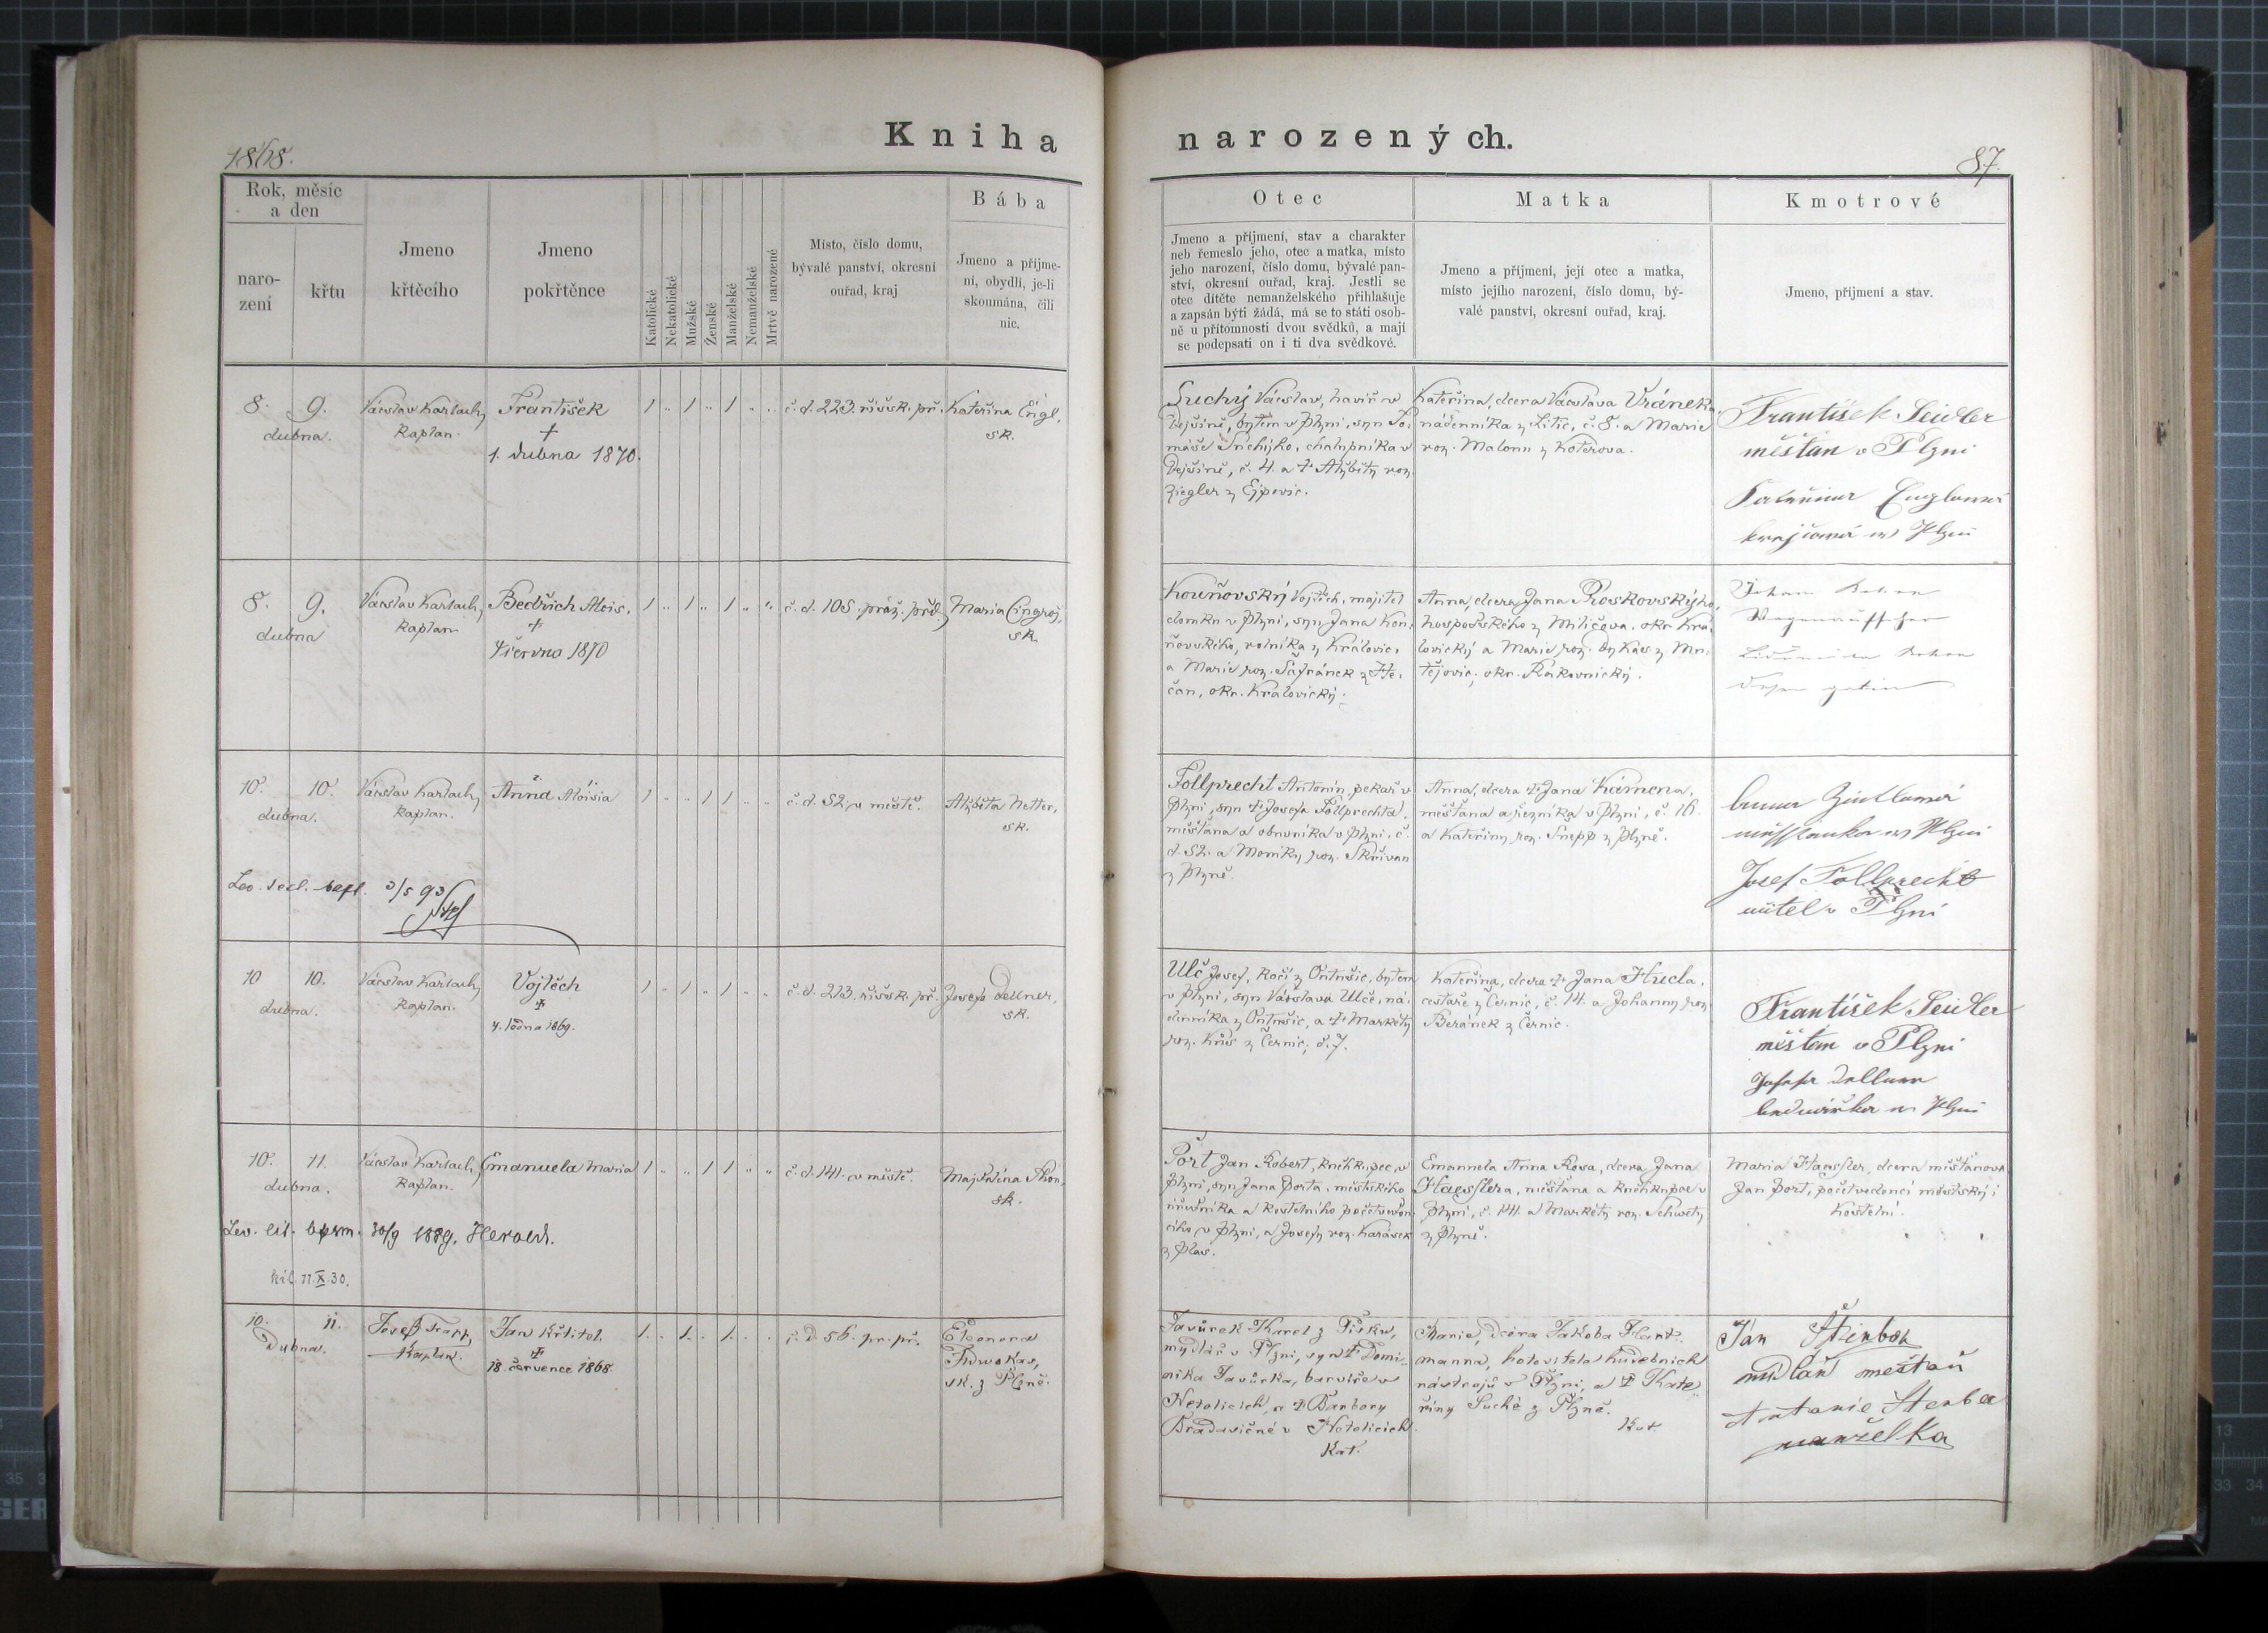 Kniha narozených.
1868.
87.
Rok, měsíc
a den
naro-
zení
křtu
Jmeno
křtěcího
Jmeno
pokřtěnce
Katolické
Nekatolické
Mužské
Ženské
Manželské
Nemanželské
Mrtvě narozené
Místo, číslo domu,
bývalé panství, okresní
ouřad, kraj
Bába
Jmeno a příjme-
ní, obydlí, je-li
skoumána, čili
nic.
Otec
Jmeno a příjmení, stav a charakter
neb řemeslo jeho, otec a matka, místo
jeho narození, číslo domu, bývalé pan-
ství, okresní ouřad, kraj. Jestli se
otec dítěte nemanželského přihlašuje
a zapsán býti žádá, má se to státi osob-
ně u přítomnosti dvou svědků, a mají
se podepsati on i ti dva svědkové.
Matka
Jmeno a příjmení, její otec a matka,
místo jejího narození, číslo domu, bý-
valé panství, okresní ouřad, kraj.
Kmotrové
Jmeno, příjmení a stav.
8. 9.
dubna.
Václav Karlach,
Kaplan.
František
†
1. dubna 1870.
1 " 1 " 1 " "
č. d. 223. říšsk. př.
Kateřina Engl,
sk.
Suchý Václav, havíř v
Dejšině, bytem v Plzni, syn To-
máše Suchýho, chalupníka v
Dejšině, č. 4. a † Alžběty roz.
Ziegler z Ejpovic.
Kateřina, dcera Václava Vránek,
nádenníka z Litic, č. 8. a Marie
roz. Maloun z Koterova.
František Seidler
měšťan v Plzni
Kateřina Englowá
krajčowá w Plzni
8. 9.
dubna
Václav Karlach,
Kaplan
Bedřich Alois.
†
června 1870
1 " 1 " 1 " "
č. d. 105. praž. před.
Maria Cingroš,
sk.
Kouňovský Vojtěch, majitel
domku v Plzni, syn Jana Kou-
ňovského, rolníka z Královic,
a Marie roz. Šafránek z He-
čan, okr. Kralovický.
Anna, dcera Jana Proskovskýho,
hospodského z Milíčova, okr. Kra-
lovický a Marie roz. z Mu-
tějovic, okr. Rakovnický.
Johann
10. 10.
dubna.
Václav Karlach,
Kaplan.
Anna Aloisia
1 " " 1 1 " "
č. d. 52. v městě.
Alžběta Netter,
sk.
Follprecht Antonín, pekař v
Plzni, syn † Josefa Follprechta,
měšťana a obuvníka v Plzni, č.
d. 52. a Moniky roz. Skřivan
z Plzně.
Anna, dcera † Jana Kámena,
měšťana a řezníka v Plzni, č. 16.
a Kateřiny roz. Šnepp z Plzně.
w Plzni
Josef Follprecht
učitel v Plzni
Lev. sed. bapt. 3/5 93
10 10.
dubna.
Václav Karlach,
Kaplan.
Vojtěch
†
4. ledna 1869.
1 " 1 " 1 " "
č. d. 213. říšsk. př.
Josefa Dellner,
sk.
Ulč Josef, kočí z Öntušic, bytem
v Plzni, syn Václava Ulče, ná-
denníka z Öntušic, a † Markéty
roz. Kříž z Černic, č. 7.
Kateřina, dcera † Jana Hucla,
cestáře z Černic, č. 14. a Johanny roz.
Beránek z Černic.
František Seidler
měšťan v Plzni
Josefa Dellner
w Plzni
10. 11.
dubna.
Václav Karlach,
Kaplan.
Emanuela Maria
1 " " 1 1 " "
č. d. 141. v městě.
Majdalena Thon,
sk.
Port Jan Robert, kněhkupec v
Plzni, syn Jana Porta, městského
úředníka a kostelního počtveden-
cího v Plzni, a Josefy roz. Karásek
z Plas.
Emanuela Anna Rosa, dcera Jana
Haesslera, měšťana a kněhkupce v
Plzni, č. 141. a Markéty roz. Schwetz
z Plzně.
Maria Haessler, dcera měšťanova
Jan Port, počtvedoucí městský i
kostelní.
Lev. lit. bapsm. 30/9 1889. Herold.
kil. 11.X.30.
10. 11.
Dubna.
Josef Trapp,
Kaplan.
Jan Křtitel.
†
18. července 1868.
1. " 1. " 1. " "
č. d. 56. pr. př.
Eleonora
sk. z Plzně.
Javůrek Karel z Písku,
mydlář v Plzni, syn † Domi-
nika Javůrka, barvíře v
Netolicích, a † Barbory
Bradavičné v Netolicích
Kat.
Marie, dcera Jakoba Hart-
manna, hotovitele hudebních
nástrojů v Plzni, a † Kate-
řiny Suché z Plzně.
Kat.
Jan Štěrba
midlař mešťan
Antonie Šterba
manželka